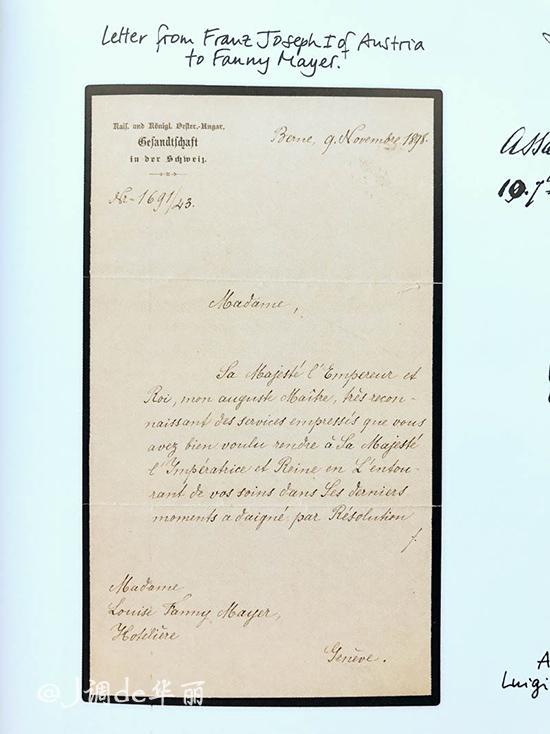 Letter from Franz Joseph I of Austria
to Fanny Mayer.
Kais. und Königl. Oester.-Ungar.
Gesandtschaft
in der Schweiz.
Berne, 9. Novembre 1898.
Nr. 1691/43.
Madame,
Sa Majesté l'Empereur et
Roi, mon auguste Maître, très recon-
naissant des services empressés que vous
avez bien voulu rendre à Sa Majesté
l'Impératrice et Reine en L'entou-
rant de vos soins dans Ses derniers
moments a daigné, par Résolution
/.
Madame
Louise Fanny Mayer,
Hotelière
Genève.
Assa
10.
A
Luigi
@J调de华丽